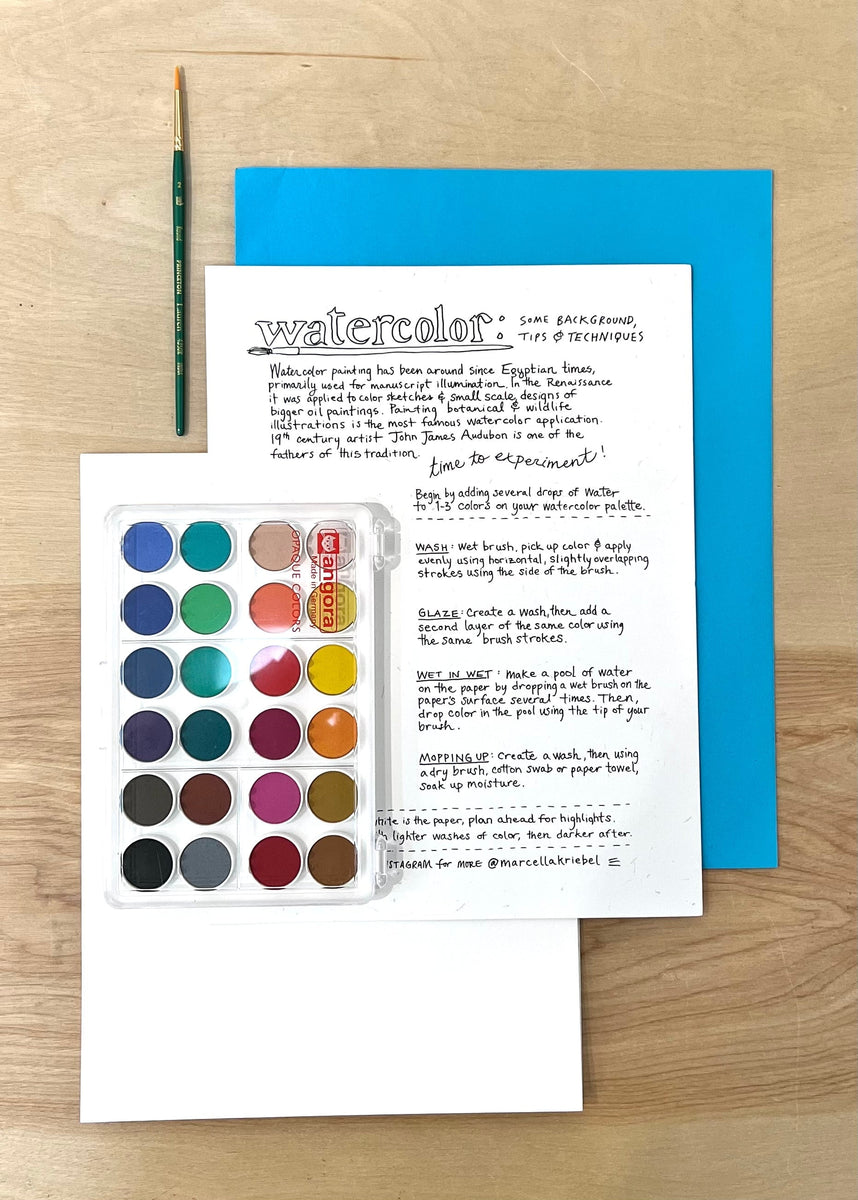 watercolor:
SOME BACKGROUND,
TIPS & TECHNIQUES
Watercolor painting has been around since Egyptian times,
primarily used for manuscript illumination. In the Renaissance
it was applied to color sketches & small scale designs of
bigger oil paintings. Painting botanical & wildlife
illustrations is the most famous watercolor application.
19th century artist John James Audubon is one of the
fathers of this tradition.
time to experiment!
Begin by adding several drops of water
to 1-3 colors on your watercolor palette.
WASH: Wet brush, pick up color & apply
evenly using horizontal, slightly overlapping
strokes using the side of the brush.
GLAZE: Create a wash, then add a
second layer of the same color using
the same brush strokes.
WET IN WET: Make a pool of water
on the paper by dropping a wet brush on the
paper's surface several times. Then,
drop color in the pool using the tip of your
brush.
MOPPING UP: Create a wash, then using
a dry brush, cotton swab or paper towel,
soak up moisture.
is the paper, plan ahead for highlights.
lighter washes of color, then darker after.
for MORE @marcellakriebel
angora
Made in Germany
OPAQUE COLORS
2
PRINCETON